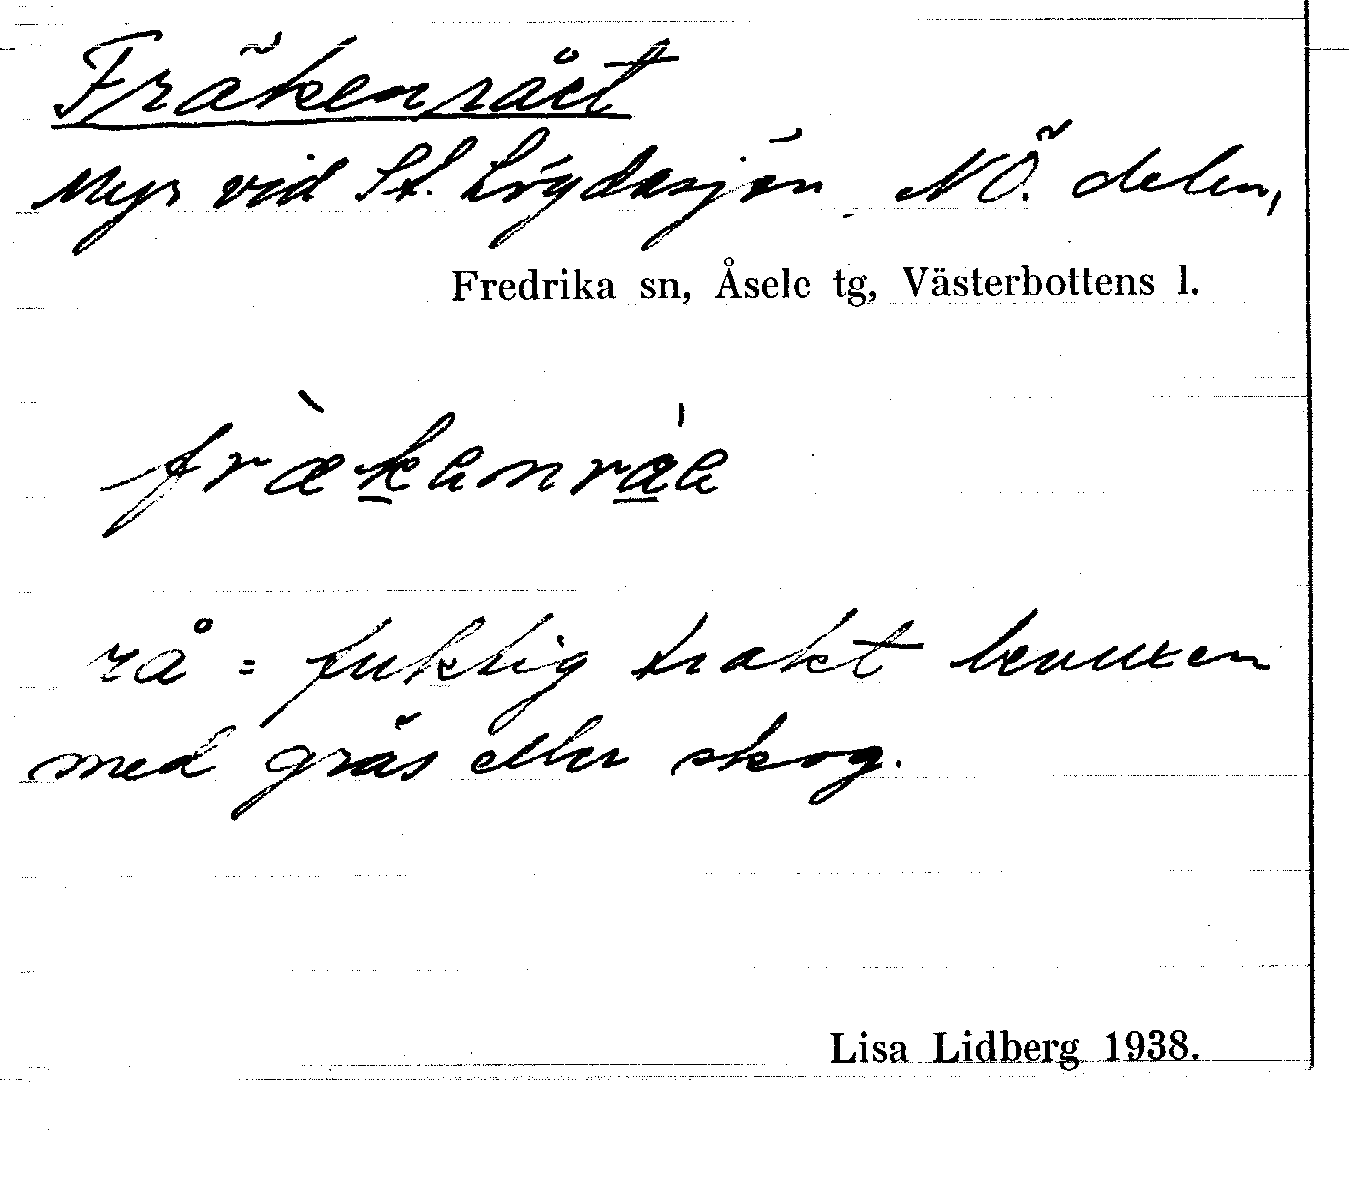 Fräkenrået
Myr vid St. Lögdasjön, NÖ. delen,
Fredrika sn, Åsele tg, Västerbottens l.
rå = fuktig trakt bevuxen
med gräs eller skog.
Lisa Lidberg 1938.